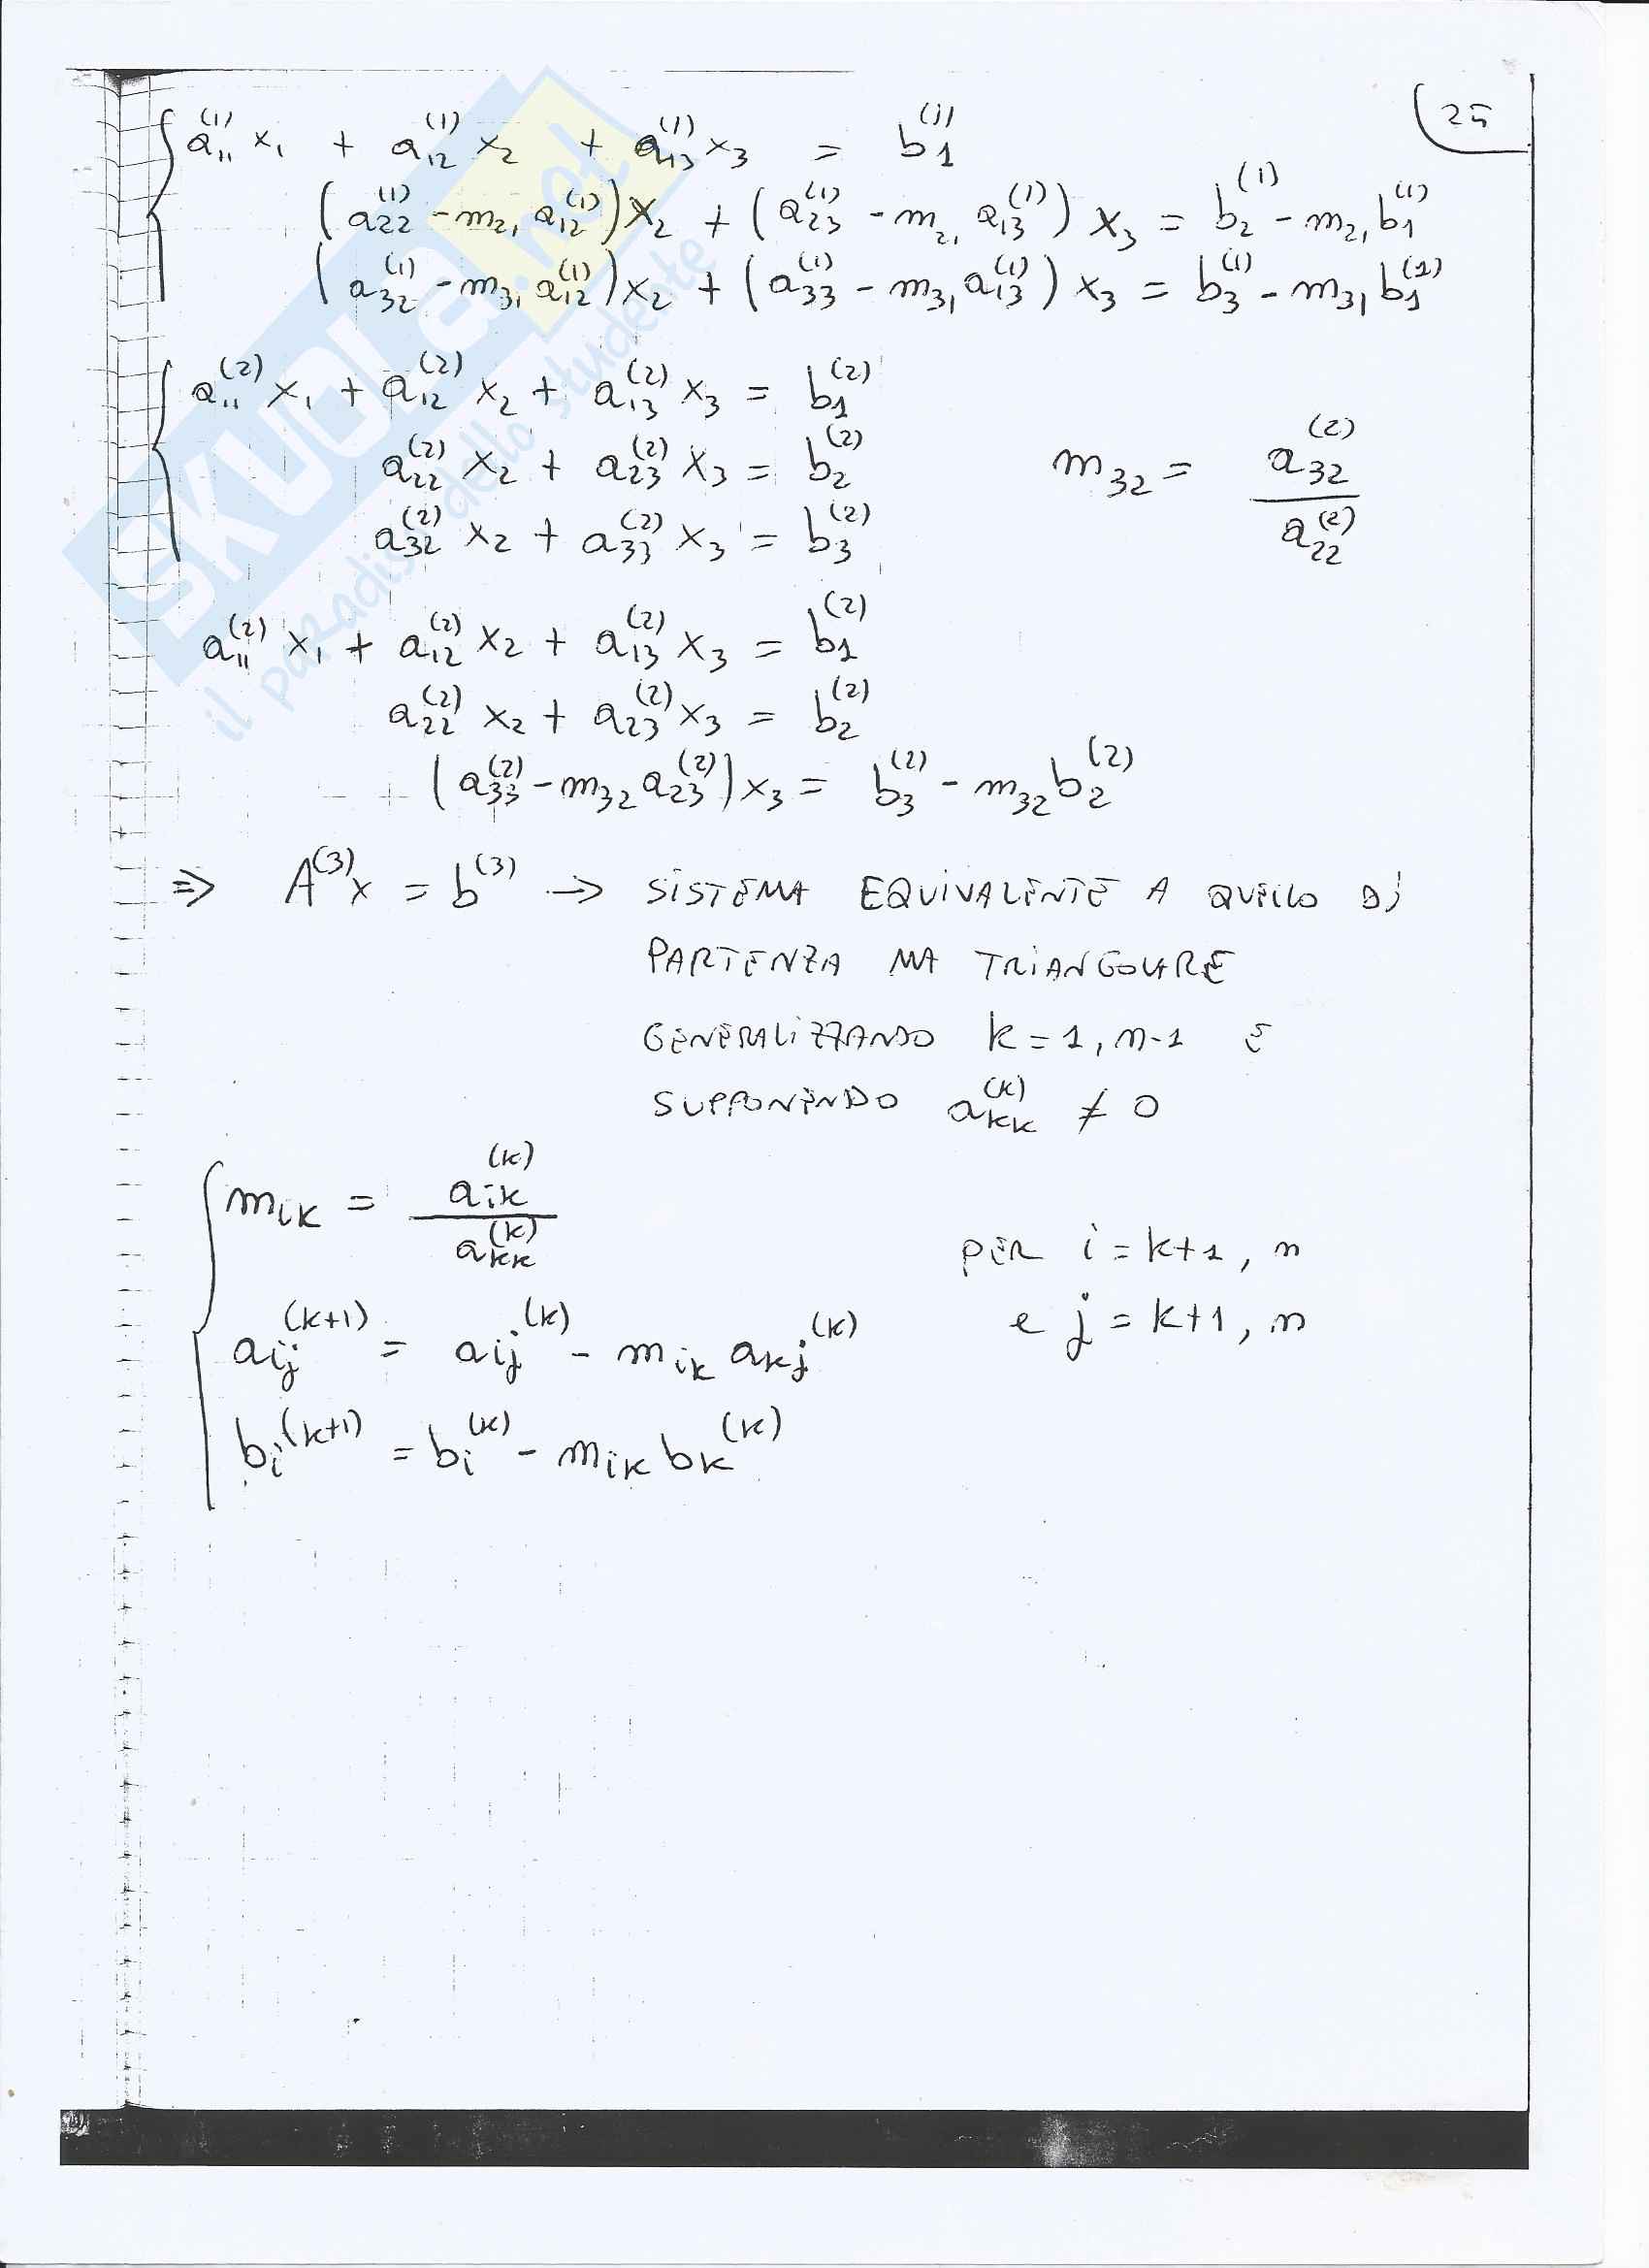 25
a₁₁⁽¹⁾ x₁ + a₁₂⁽¹⁾ x₂ + a₁₃⁽¹⁾ x₃ = b₁⁽¹⁾
(a₂₂⁽¹⁾ - m₂₁ a₁₂⁽¹⁾) x₂ + (a₂₃⁽¹⁾ - m₂₁ a₁₃⁽¹⁾) x₃ = b₂⁽¹⁾ - m₂₁ b₁⁽¹⁾
(a₃₂⁽¹⁾ - m₃₁ a₁₂⁽¹⁾) x₂ + (a₃₃⁽¹⁾ - m₃₁ a₁₃⁽¹⁾) x₃ = b₃⁽¹⁾ - m₃₁ b₁⁽¹⁾
a₁₁⁽²⁾ x₁ + a₁₂⁽²⁾ x₂ + a₁₃⁽²⁾ x₃ = b₁⁽²⁾
a₂₂⁽²⁾ x₂ + a₂₃⁽²⁾ x₃ = b₂⁽²⁾
a₃₂⁽²⁾ x₂ + a₃₃⁽²⁾ x₃ = b₃⁽²⁾
m₃₂ = a₃₂⁽²⁾ / a₂₂⁽²⁾
a₁₁⁽²⁾ x₁ + a₁₂⁽²⁾ x₂ + a₁₃⁽²⁾ x₃ = b₁⁽²⁾
a₂₂⁽²⁾ x₂ + a₂₃⁽²⁾ x₃ = b₂⁽²⁾
(a₃₃⁽²⁾ - m₃₂ a₂₃⁽²⁾) x₃ = b₃⁽²⁾ - m₃₂ b₂⁽²⁾
⇒ A⁽³⁾x = b⁽³⁾ → SISTEMA EQUIVALENTE A QUELLO DI
PARTENZA MA TRIANGOLARE
GENERALIZZANDO k = 1, n-1 E
SUPPONENDO aₖₖ⁽ᵏ⁾ ≠ 0
mᵢₖ = aᵢₖ⁽ᵏ⁾ / aₖₖ⁽ᵏ⁾
PER i = k+1, n
aᵢⱼ⁽ᵏ⁺¹⁾ = aᵢⱼ⁽ᵏ⁾ - mᵢₖ aₖⱼ⁽ᵏ⁾
e j = k+1, n
bᵢ⁽ᵏ⁺¹⁾ = bᵢ⁽ᵏ⁾ - mᵢₖ bₖ⁽ᵏ⁾
SKUOLA.net
il paradiso dello studente